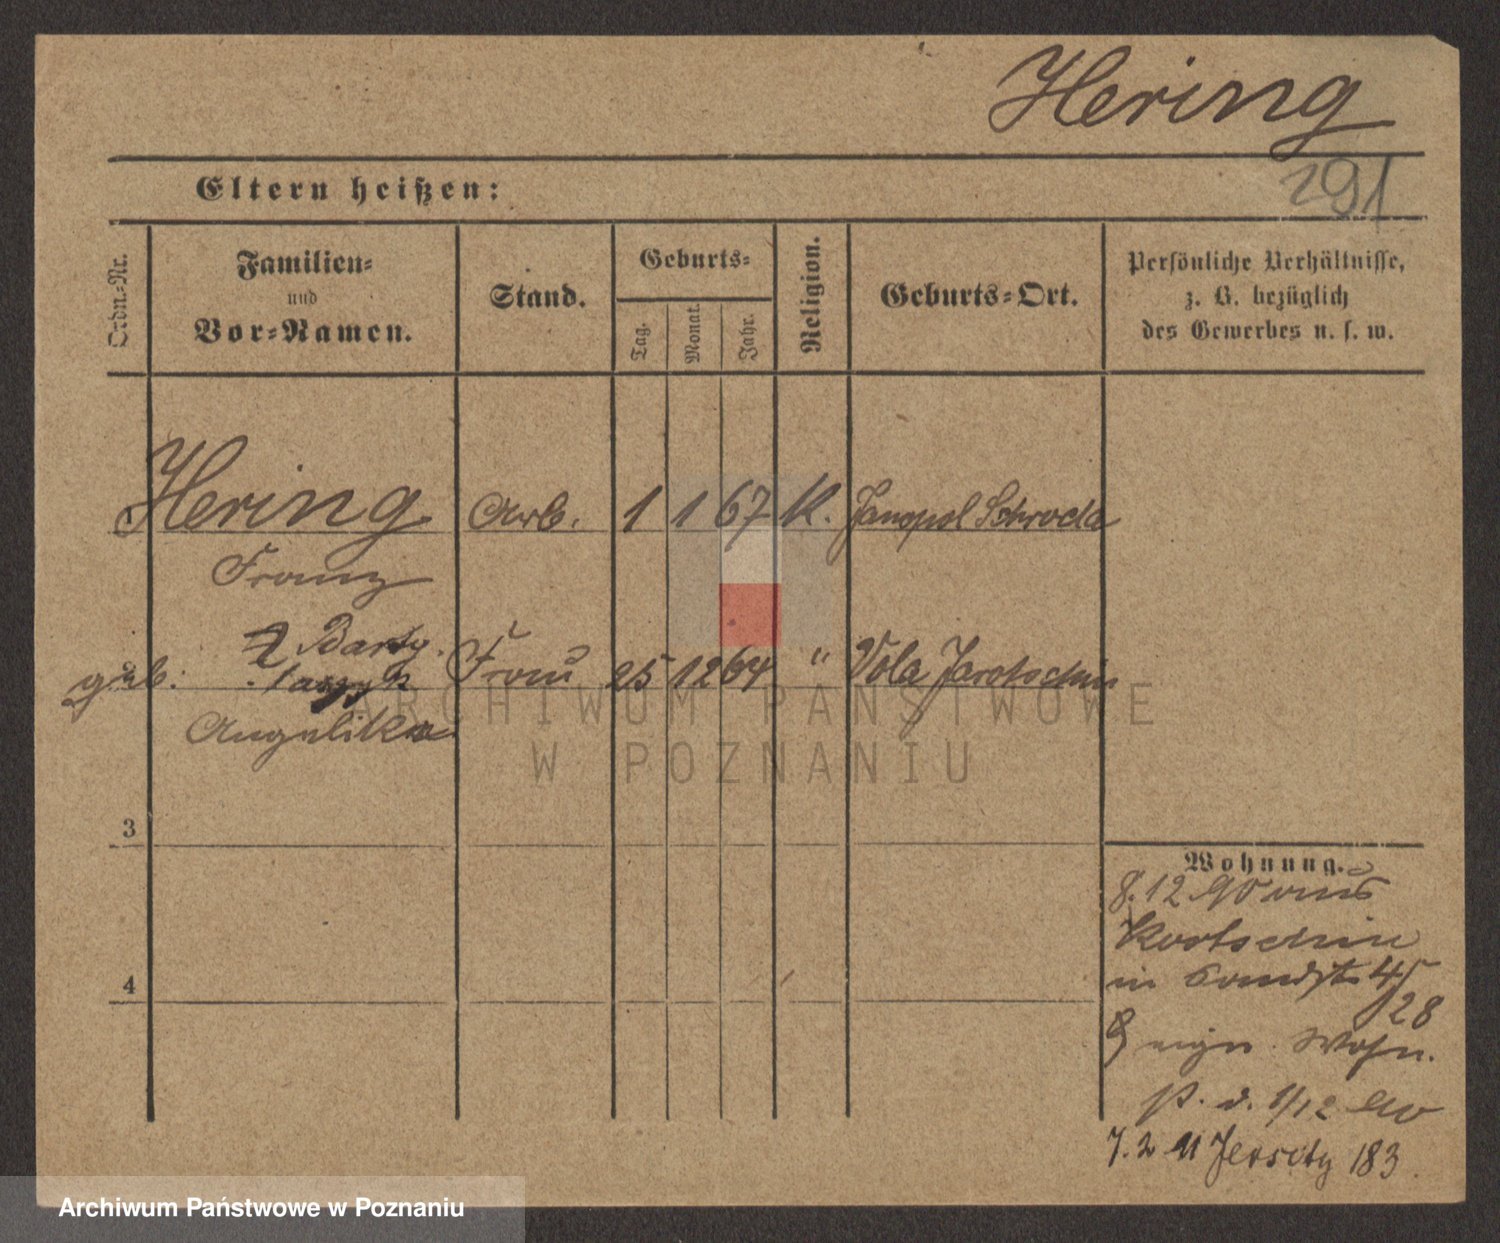 Hering
291
Eltern heißen:
Ordn.-Nr.
Familien-
und
Vor-Namen.
Stand.
Geburts-
Tag.
Monat.
Jahr.
Religion.
Geburts-Ort.
Persönliche Verhältnisse,
z. B. bezüglich
des Gewerbes u. s. w.
Hering Arb. 1 1 67 K. Janopol Schroda
Franz
geb. Frau 25 12 64 " Vola Jarotschin
Angelika
3
4
Wohnung.
8.12 90 aus
in 45
28
Wohn.
p. d. 1/12 90
7.2 91 Jersitz 183
ARCHIWUM PAŃSTWOWE
W POZNANIU
Archiwum Państwowe w Poznaniu